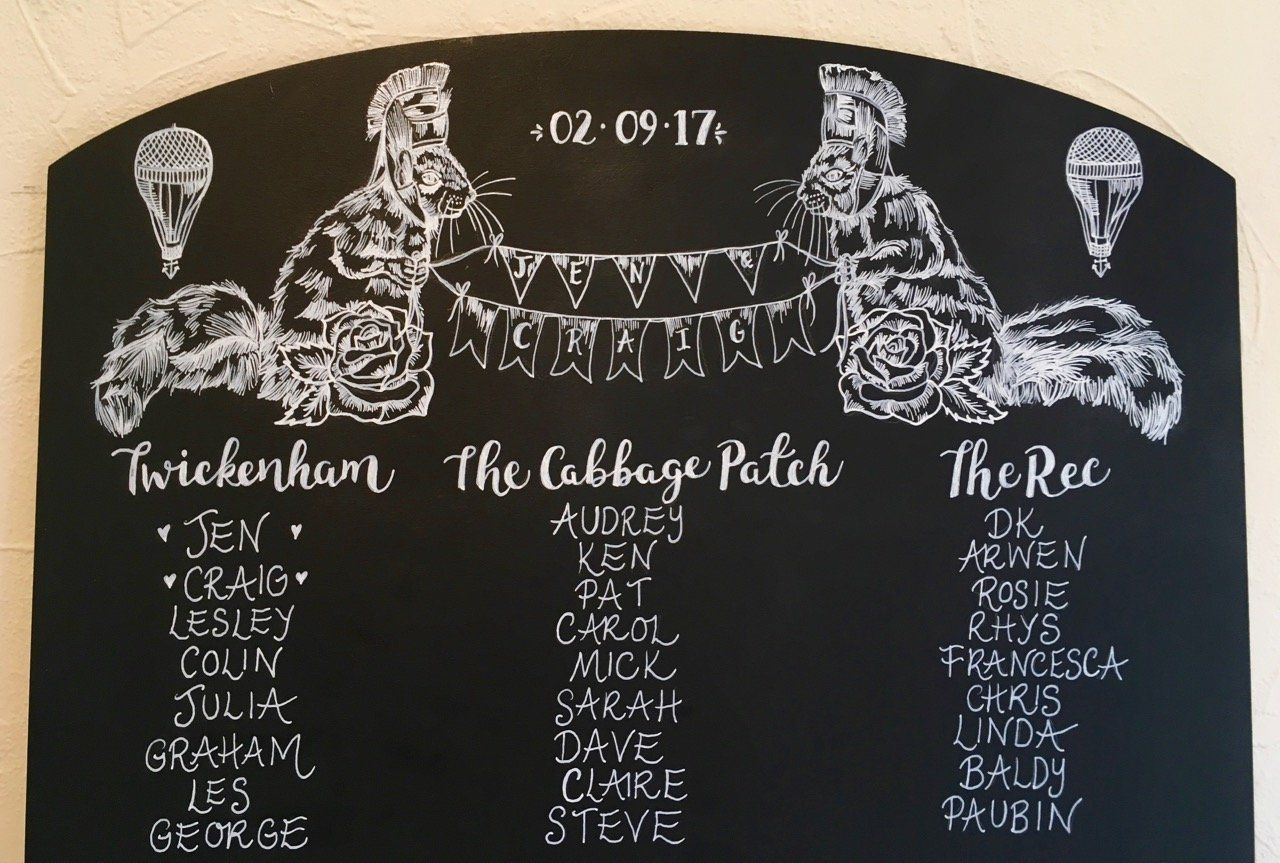 02·09·17
JEN &
CRAIG
Twickenham
JEN
CRAIG
LESLEY
COLIN
JULIA
GRAHAM
LES
GEORGE
The Cabbage Patch
AUDREY
KEN
PAT
CAROL
MICK
SARAH
DAVE
CLAIRE
STEVE
The Rec
DK
ARWEN
ROSIE
RHYS
FRANCESCA
CHRIS
LINDA
BALDY
PAUBIN